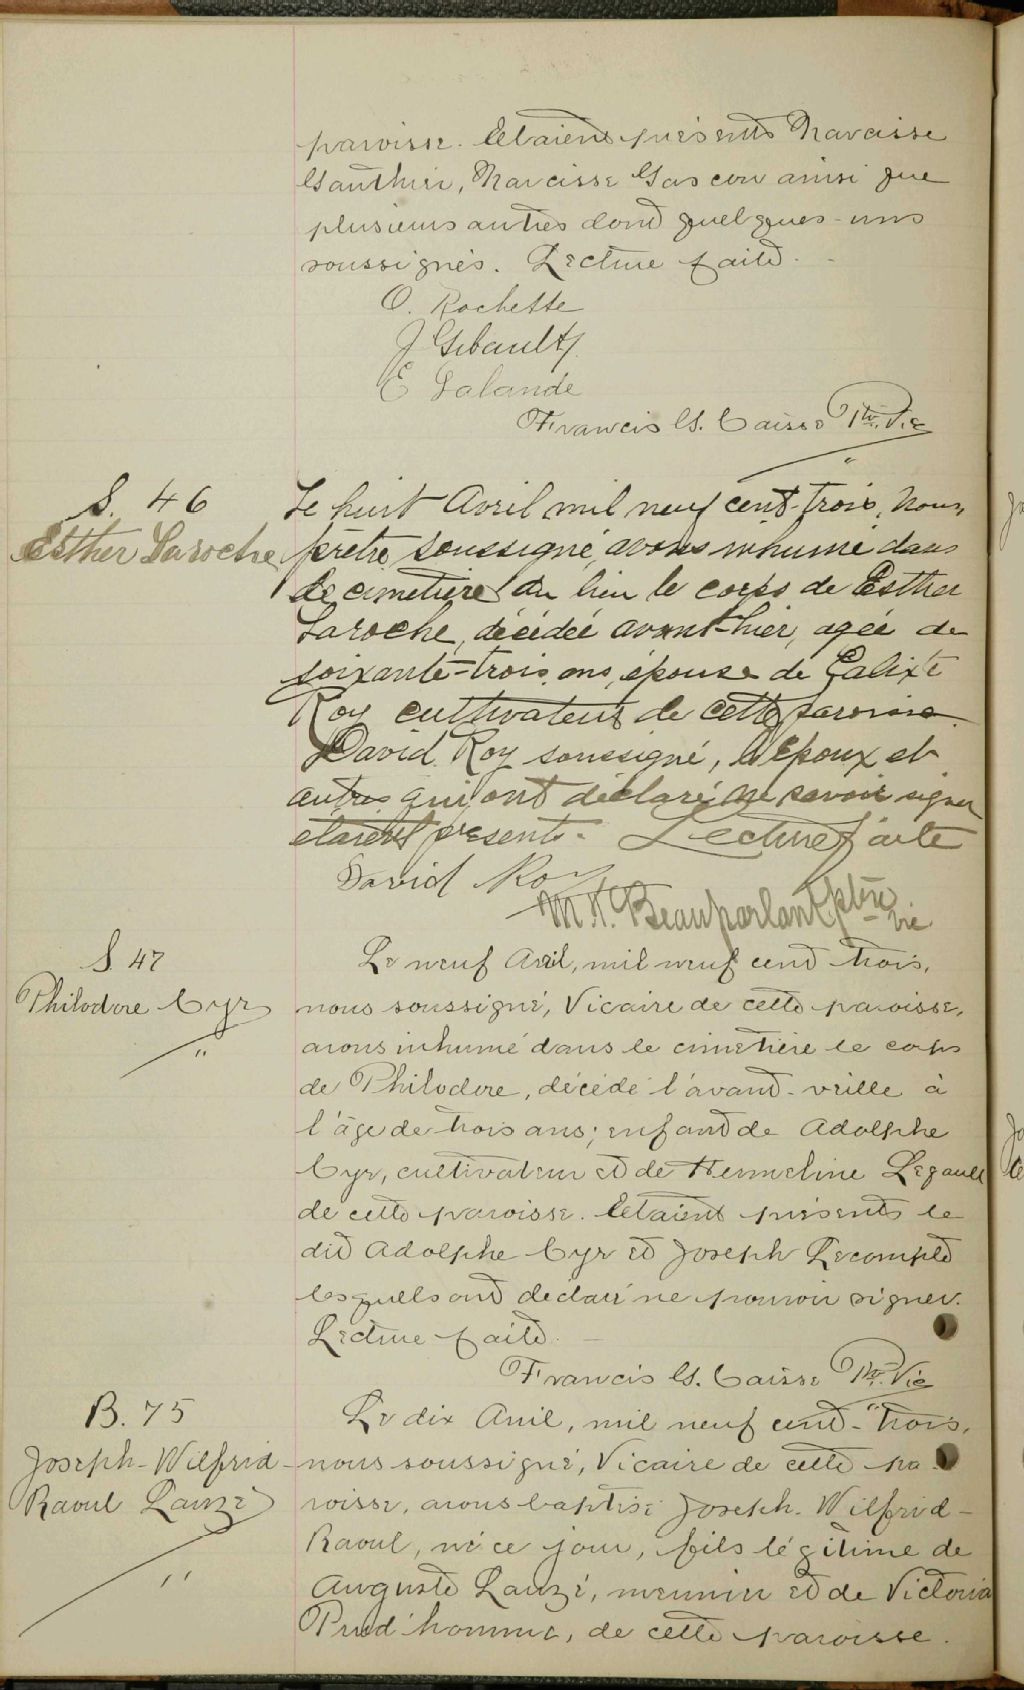 paroisse. Etaient présents Narcisse
Gauthier, Narcisse Gascon ainsi que
plusieurs autres dont quelques-uns
soussignés. Lecture faite.
O. Rochette
J Gibault
E Lalande
Francis G. Caisse Ptre. Vic
S. 46
Esther Laroche
Le huit Avril mil neuf cent-trois, Nous,
prêtre soussigné, avons inhumé dans
le cimetière du lieu le corps de Esther
Laroche, décédée avant-hier, agée de
soixante-trois ans, épouse de Calixte
Roy cultivateur de cette paroisse.
David Roy soussigné, l'époux et
autres qui ont déclaré ne savoir signer
étaient present. Lecture faite
David Roy
M. N. Beauparlant ptre vic
S. 47
Philodore Cyr
"
Le neuf Avril, mil neuf cent trois,
nous soussigné, Vicaire de cette paroisse,
avons inhumé dans le cimetière le corps
de Philodore, décédé l'avant-veille à
l'âge de trois ans; enfant de Adolphe
Cyr, cultivateur et de Hermeline Legault
de cette paroisse. Etaient présents le
dit Adolphe Cyr et Joseph Lecompte
lesquels ont déclaré ne pouvoir signer.
Lecture faite.
Francis G. Caisse Ptre. Vic
B. 75
Joseph-Wilfrid-
Raoul Lauzé
"
Le dix Avril, mil neuf cent-trois,
nous soussigné, Vicaire de cette pa-
roisse, avons baptisé Joseph-Wilfrid-
Raoul, né ce jour, fils légitime de
Auguste Lauzé, meunier et de Victoria
Prud'homme, de cette paroisse.